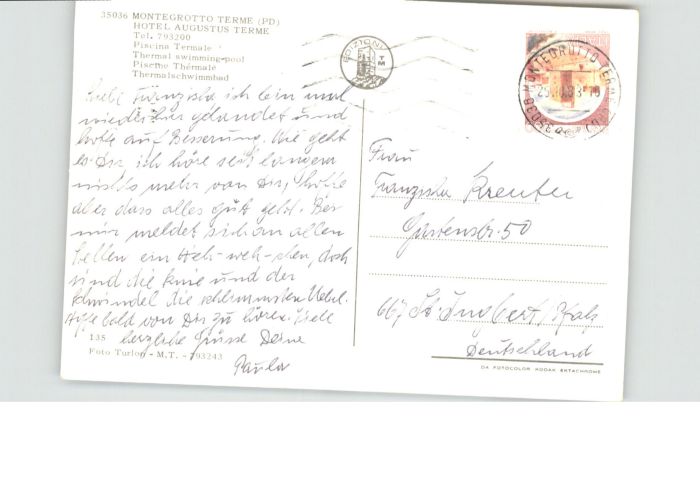 35036 MONTEGROTTO TERME (PD)
HOTEL AUGUSTUS TERME
Tel. 793200
Piscina Termale
Thermal swimming-pool
Piscine Thérmale
Thermalschwimmbad
EDIZIONI
TM
35036 MONTEGROTTO TERME
Liebe Franziska ich bin mal
wieder hier gelandet und
hoffe auf Besserung. Wie geht
es Dir ich höre seit langem
nichts mehr von Dir, hoffe
aber dass alles gut geht. Bei
mir meldet sich an allen
Stellen ein Weh-weh-chen, doch
sind die Knie und der
Schwindel die schlimmsten Uebel.
Hoffe bald von Dir zu hören. Viele
herzliche Grüsse Deine
Paula
Frau
Franziska Kreuter
Gartenstr. 50
667, St Ingbert/Pfalz
Deutschland
135
Foto Turlon - M.T. - 793243
DA FOTOCOLOR KODAK EKTACHROME